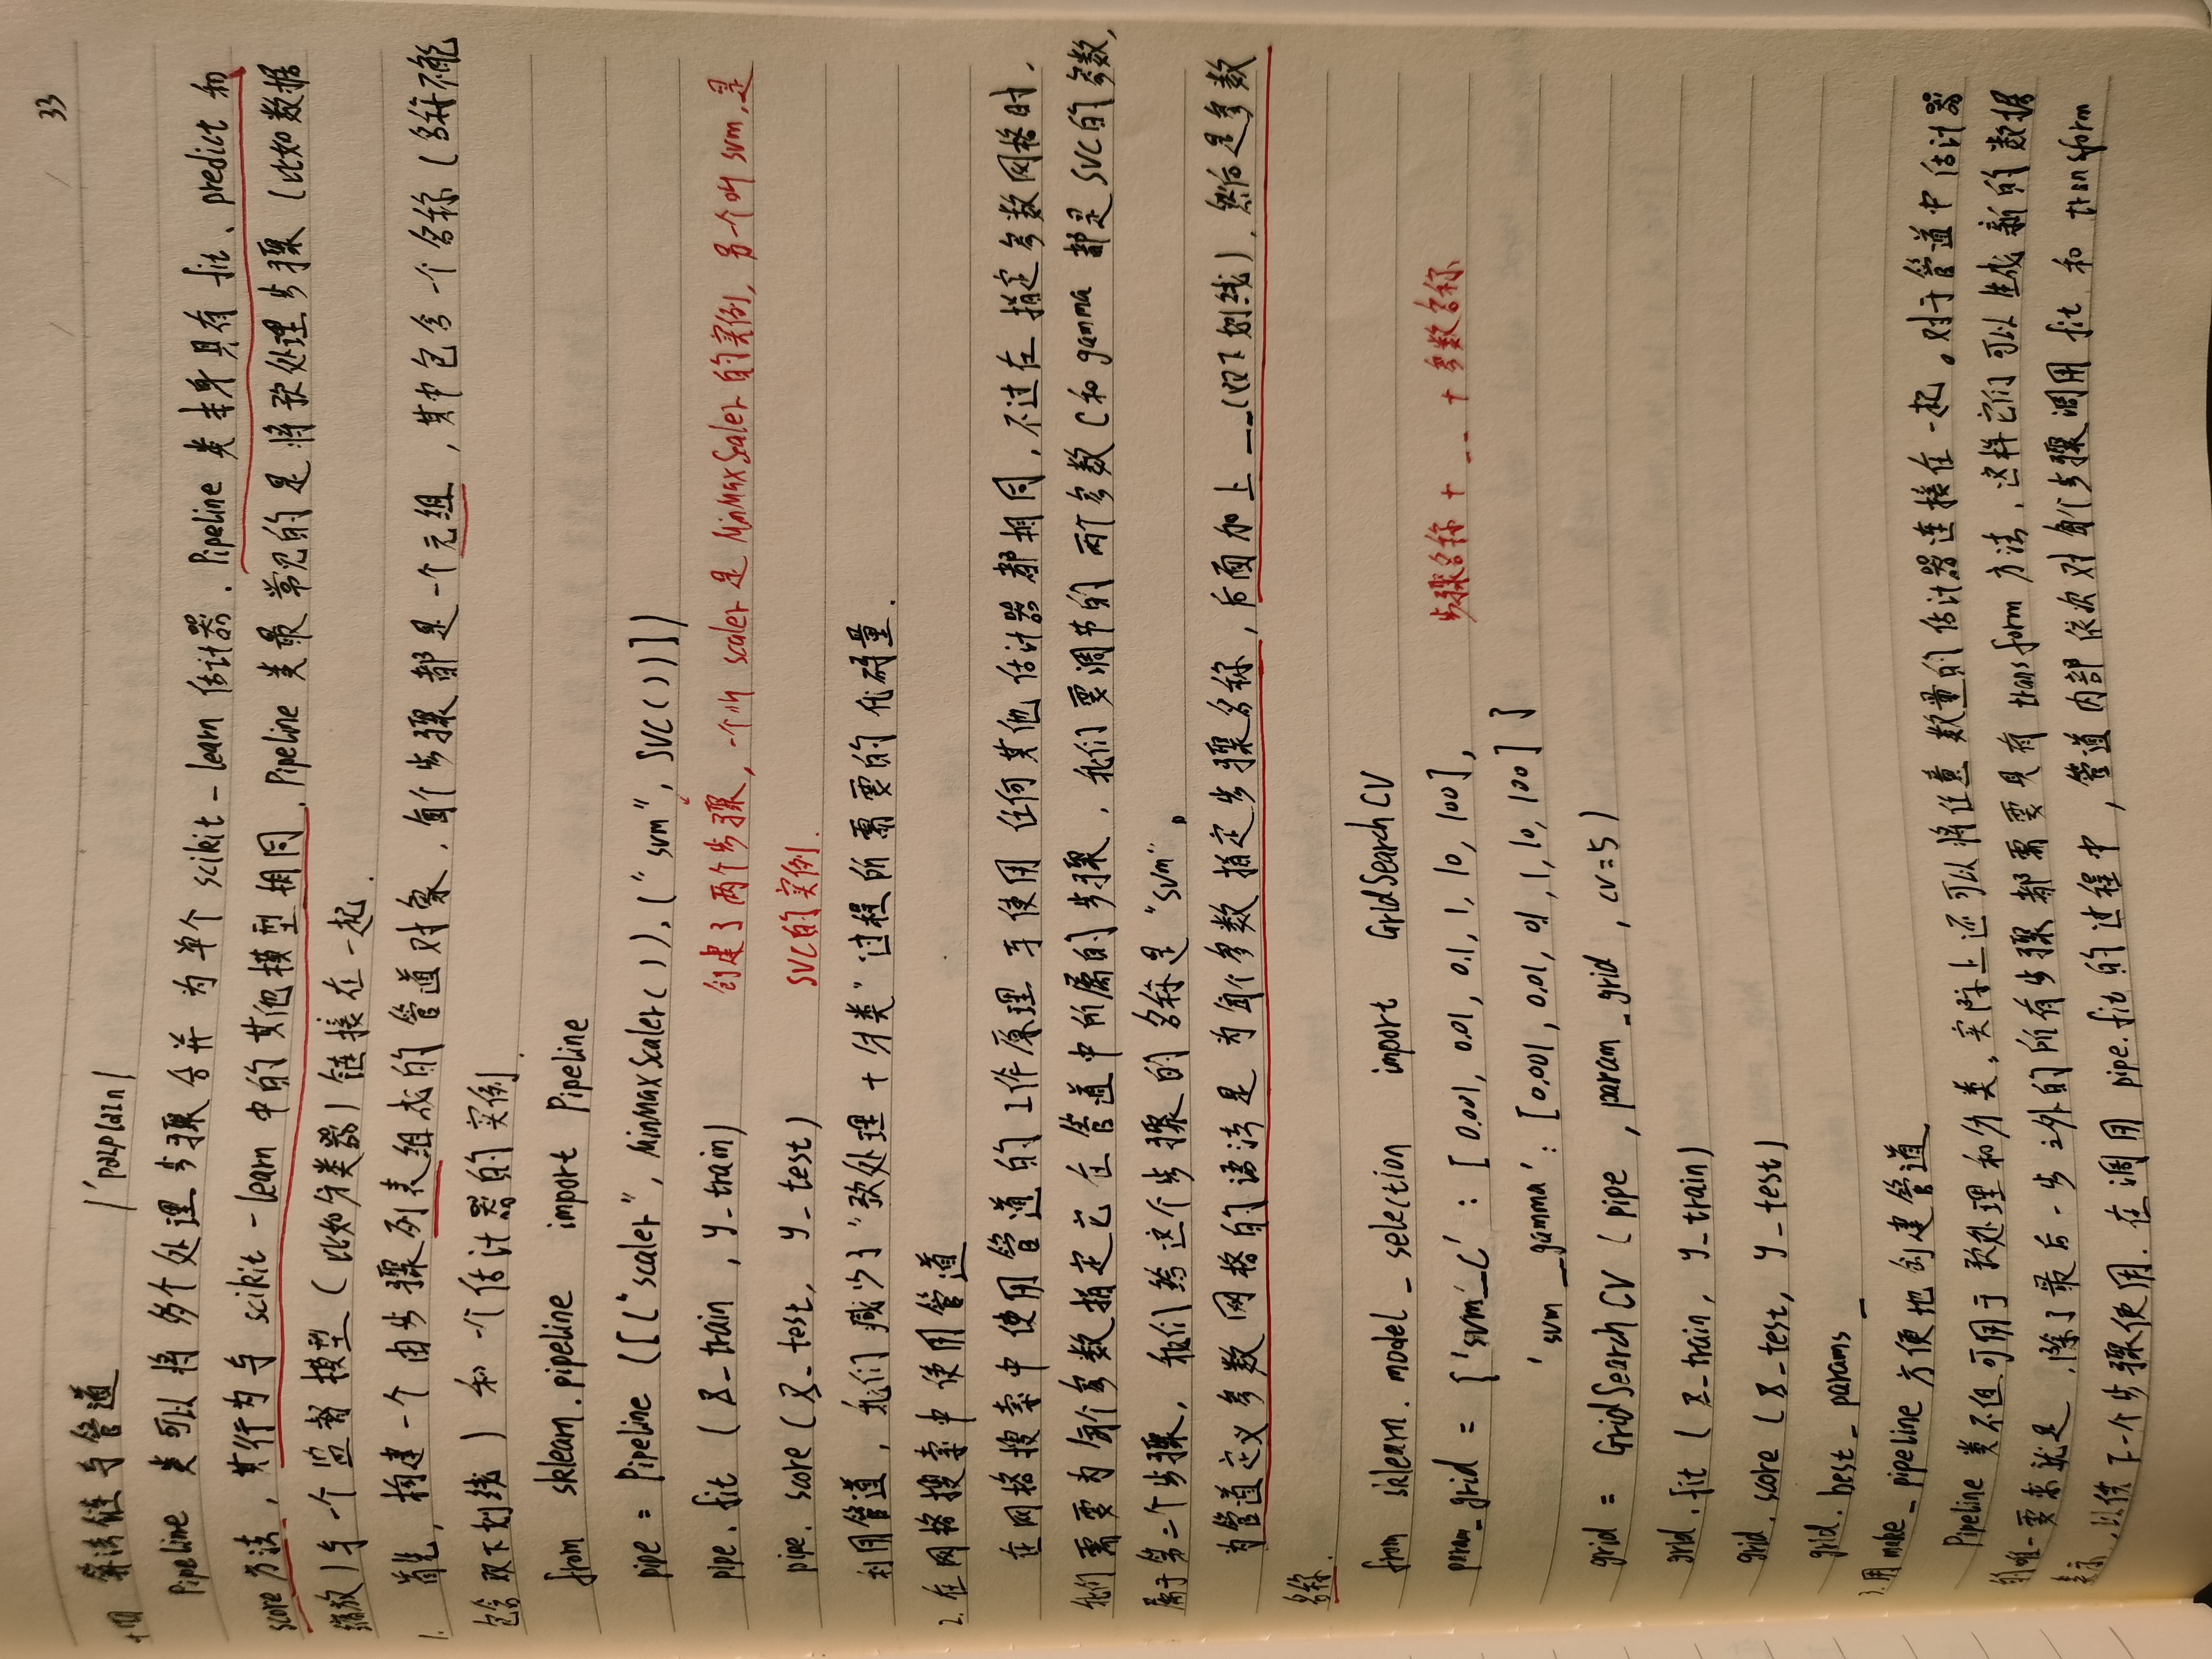 33
十四 算法链与管道 /'paɪplaɪn/
Pipeline 类可以将多个处理步骤合并为单个 scikit-learn 估计器. Pipeline 类本身具有 fit、predict 和
score 方法, 其行为与 scikit-learn 中的其他模型相同. Pipeline 类最常见的是将预处理步骤 (比如数据
缩放) 与一个监督模型 (比如分类器) 链接在一起.
1. 首先, 构建一个由步骤列表组成的管道对象, 每个步骤都是一个元组, 其中包含一个名称 (名称不能
包含双下划线) 和一个估计器的实例.
from sklearn.pipeline import Pipeline
pipe = Pipeline ([("scaler", MinMaxScaler()), ("svm", SVC())])
pipe.fit (X_train, y_train) 创建了两个步骤, 一个叫 scaler 是 MinMaxScaler 的实例, 另一个叫 svm, 是
pipe.score (X_test, y_test) SVC的实例.
利用管道, 我们减少了"预处理+分类"过程所需要的代码量.
2. 在网格搜索中使用管道
在网格搜索中使用管道的工作原理与使用任何其他估计器都相同, 不过在指定参数网格时,
我们需要为每个参数指定它在管道中所属的步骤, 我们要调节的两个参数 C 和 gamma 都是 SVC 的参数,
属于第二个步骤, 我们给这个步骤的名称是"svm"。
为管道定义参数网格的语法是为每个参数指定步骤名称, 后面加上__(双下划线), 然后是参数
名称.
from sklearn.model_selection import GridSearchCV
param_grid = {'svm__C': [0.001, 0.01, 0.1, 1, 10, 100], 步骤名称 + __ + 参数名称
'svm__gamma': [0.001, 0.01, 0.1, 1, 10, 100]}
grid = GridSearchCV (pipe, param_grid, cv=5)
grid.fit (X_train, y_train)
grid.score (X_test, y_test)
grid.best_params_
3. 用 make_pipeline 方便地创建管道
Pipeline 类不但可用于预处理和分类, 实际上还可以将任意数量的估计器连接在一起。对于管道中估计器
的唯一要求就是, 除了最后一步之外的所有步骤都需要具有 transform 方法, 这样它们可以生成新的数据
表示, 以供下一个步骤使用. 在调用 pipe.fit 的过程中, 管道内部依次对每个步骤调用 fit 和 transform